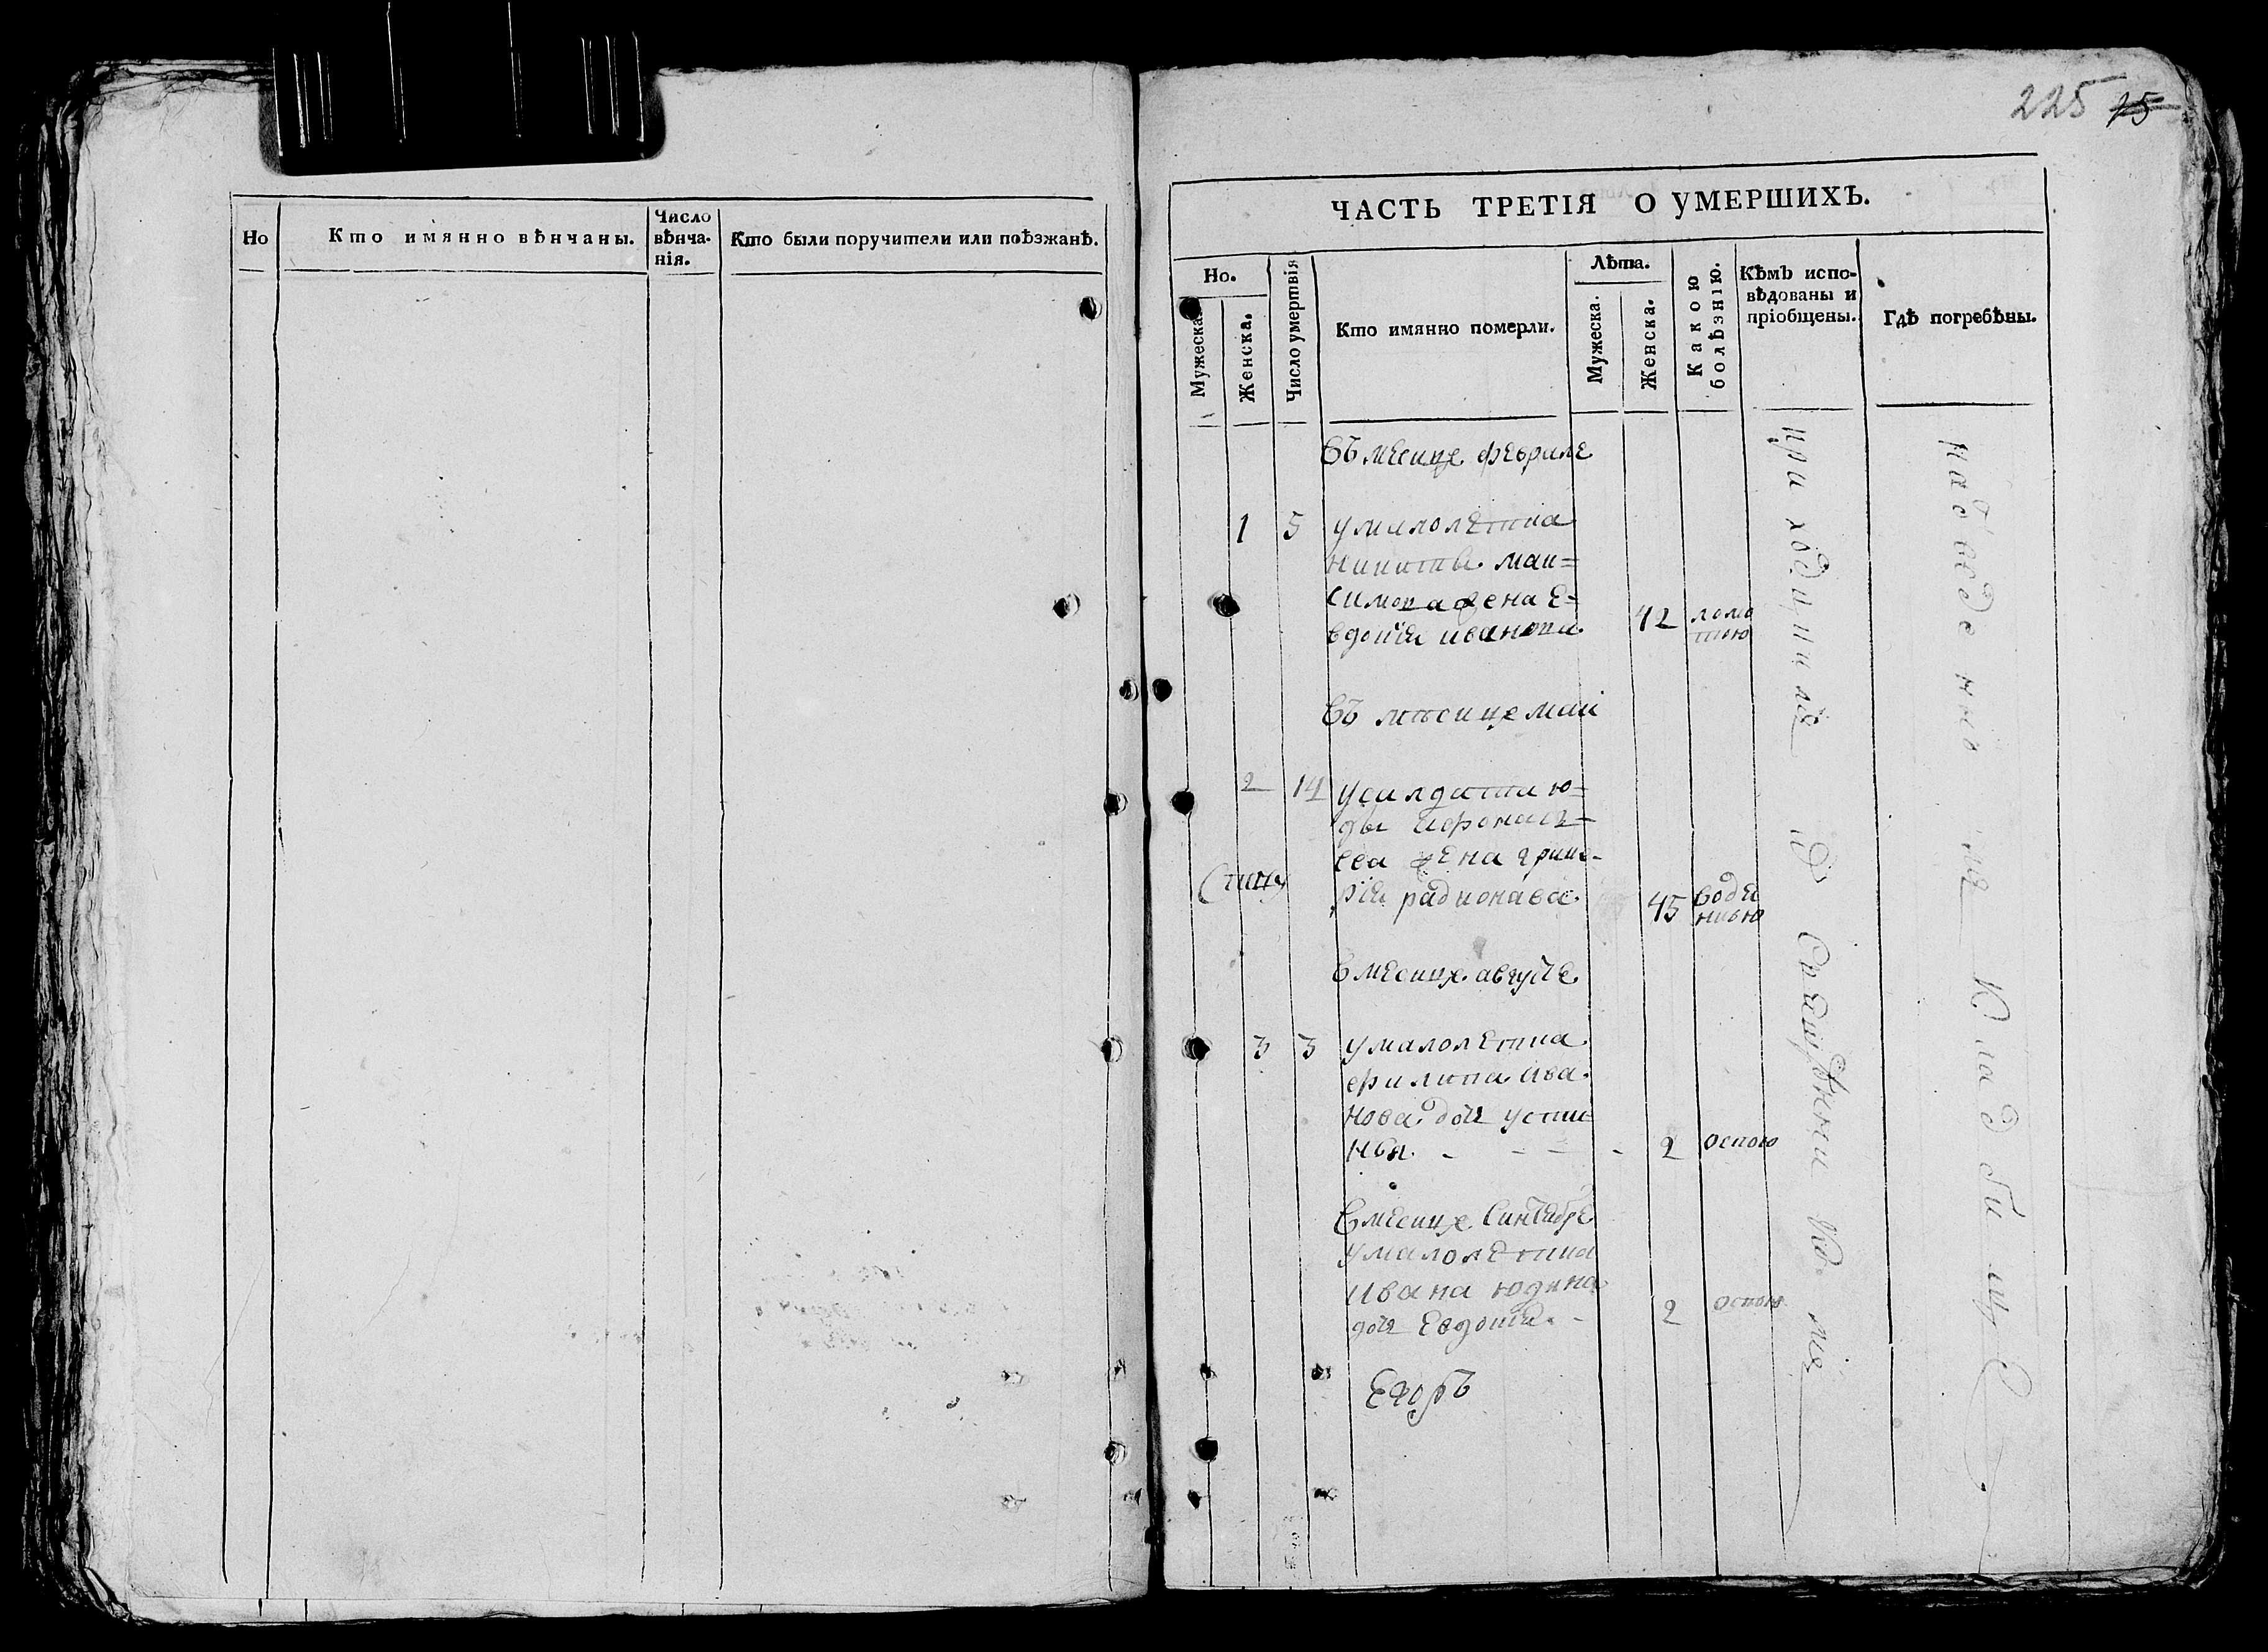 Но
Кто имянно вѣнчаны.
Число вѣнча-
нія.
Кто были поручители или поѣзжанѣ.
225 75
ЧАСТЬ ТРЕТІЯ О УМЕРШИХЪ.
Но.
Мужеска.
Женска.
Число умертвія
Кто имянно померли.
Лѣта.
Мужеска.
Женска.
Какою
болѣзнію.
Кѣмъ испо-
вѣдованы и
пріобщены.
Гдѣ погребѣны.
въ месице феврале
1 5 у малолетна
никиты мак=
симова жена е=
вдокия иванова 42 ломо
тою
въ месице маи
2 14 у салдата ю=
ды афонась=
ева жена
радионава 45 водя
ною
в месице августе
3 3 у малолетна
филипа ива
нова дочь усти
нья - - - - 2 оспою
в месице сентебре
у малолетна
ивана юдина
дочь евдокия - 2 оспою
Егоръ